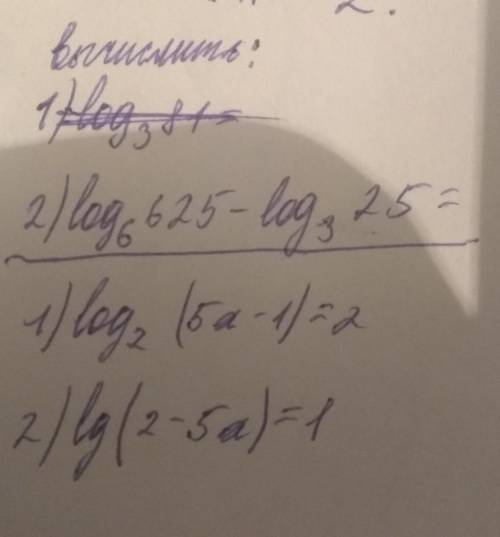 2.
вычислить:
1) log₃ 81 =
2) log₆ 625 - log₃ 25 =
1) log₂ (5a - 1) = 2
2) lg (2 - 5a) = 1